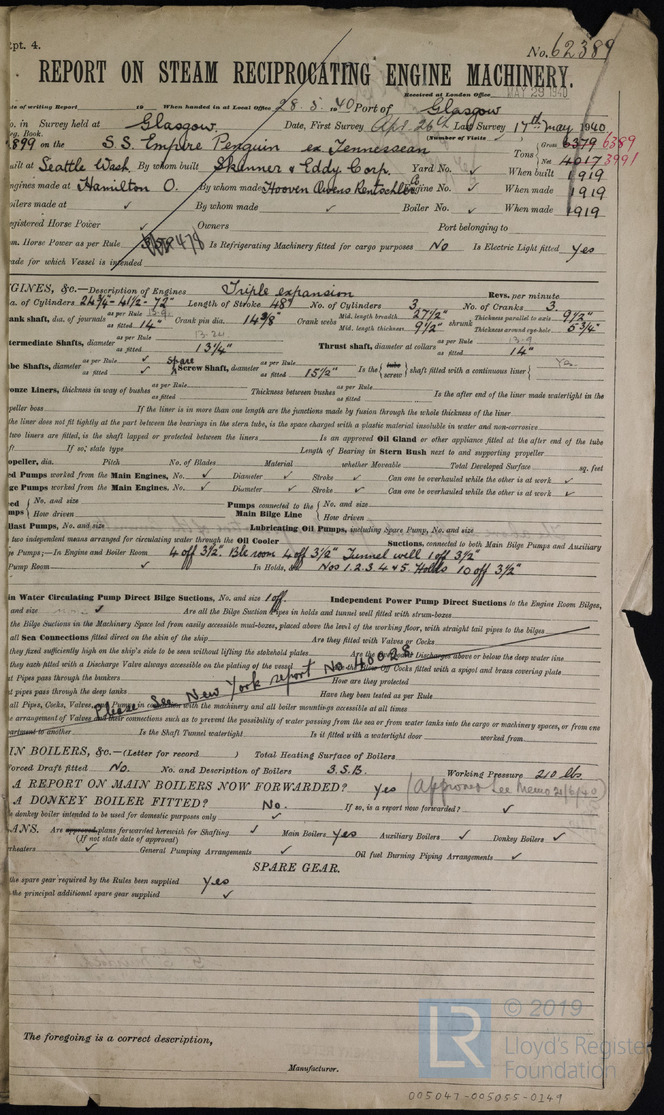 pt. 4.
No. 62389
REPORT ON STEAM RECIPROCATING ENGINE MACHINERY.
Received at London Office MAY 29 1940
te of writing Report 19 When handed in at Local Office 28.5.1940 Port of Glasgow
o. in Survey held at Glasgow. Date, First Survey Apr. 26th Last Survey 17th May 1940
eg. Book. (Number of Visits
899 on the S.S. Empire Penguin ex Tennessean Tons Gross 6379 6389 Net 4017 3991
uilt at Seattle Wash. By whom built Skinner & Eddy Corp. Yard No. ✓ When built 1919
ngines made at Hamilton O. By whom made Hooven Owens Rentschler Co Engine No. ✓ When made 1919
oilers made at ✓ By whom made ✓ Boiler No. ✓ When made 1919
egistered Horse Power Owners Port belonging to
m. Horse Power as per Rule 478 Is Refrigerating Machinery fitted for cargo purposes No Is Electric Light fitted Yes
rade for which Vessel is intended
GINES, &c.—Description of Engines Triple expansion Revs. per minute
a. of Cylinders 24¾"-41½"-72" Length of Stroke 48" No. of Cylinders 3 No. of Cranks 3.
ank shaft, dia. of journals as per Rule 13.9 as fitted 14" Crank pin dia. 14⅜" Crank webs Mid. length breadth 27½" Mid. length thickness 9½" shrunk Thickness parallel to axis 9½" Thickness around eye-hole 6¾"
termediate Shafts, diameter as per Rule 13.24 as fitted 13¼" Thrust shaft, diameter at collars as per Rule 13.9 as fitted 14"
be Shafts, diameter as per Rule ✓ as fitted ✓ Spare Screw Shaft, diameter as per Rule as fitted 15½" Is the {tube screw} shaft fitted with a continuous liner { Yes.
onze Liners, thickness in way of bushes as per Rule as fitted Thickness between bushes as per Rule as fitted Is the after end of the liner made watertight in the
peller boss If the liner is in more than one length are the junctions made by fusion through the whole thickness of the liner
the liner does not fit tightly at the part between the bearings in the stern tube, is the space charged with a plastic material insoluble in water and non-corrosive
two liners are fitted, is the shaft lapped or protected between the liners Is an approved Oil Gland or other appliance fitted at the after end of the tube
ft If so, state type Length of Bearing in Stern Bush next to and supporting propeller
opeller, dia. Pitch No. of Blades Material whether Moveable Total Developed Surface sq. feet
ed Pumps worked from the Main Engines, No. ✓ Diameter ✓ Stroke ✓ Can one be overhauled while the other is at work ✓
ge Pumps worked from the Main Engines, No. ✓ Diameter ✓ Stroke ✓ Can one be overhauled while the other is at work ✓
eed mps { No. and size How driven Pumps connected to the Main Bilge Line { No. and size How driven
llast Pumps, No. and size Lubricating Oil Pumps, including Spare Pump, No. and size
two independent means arranged for circulating water through the Oil Cooler Suctions, connected to both Main Bilge Pumps and Auxiliary
e Pumps;—In Engine and Boiler Room 4 off 3½" Ble room 4 off 3½" Tunnel well 1 off 3½"
Pump Room ✓ In Holds, &c. Nos 1.2.3.4 & 5. Holds 10 off 3½"
in Water Circulating Pump Direct Bilge Suctions, No. and size 1 off Independent Power Pump Direct Suctions to the Engine Room Bilges,
and size ✓ Are all the Bilge Suction Pipes in holds and tunnel well fitted with strum-boxes
the Bilge Suctions in the Machinery Space led from easily accessible mud-boxes, placed above the level of the working floor, with straight tail pipes to the bilges
all Sea Connections fitted direct on the skin of the ship Are they fitted with Valves or Cocks
they fixed sufficiently high on the ship's side to be seen without lifting the stokehold plates Are the Overboard Discharges above or below the deep water line
they each fitted with a Discharge Valve always accessible on the plating of the vessel Are the Blow off Cocks fitted with a spigot and brass covering plate
at Pipes pass through the bunkers How are they protected
at pipes pass through the deep tanks Have they been tested as per Rule
all Pipes, Cocks, Valves, and Pumps in connection with the machinery and all boiler mountings accessible at all times
e arrangement of Valves and their connections such as to prevent the possibility of water passing from the sea or from water tanks into the cargo or machinery spaces, or from one
artment to another Is the Shaft Tunnel watertight Is it fitted with a watertight door worked from
Please See New York report No 40028
IN BOILERS, &c.—(Letter for record ) Total Heating Surface of Boilers
orced Draft fitted No. No. and Description of Boilers 3.S.B. Working Pressure 210 lbs
A REPORT ON MAIN BOILERS NOW FORWARDED? Yes (Approved See Memo 21/6/40)
A DONKEY BOILER FITTED? No. If so, is a report now forwarded? ✓
e donkey boiler intended to be used for domestic purposes only ✓
ANS. Are approved plans forwarded herewith for Shafting ✓ Main Boilers Yes Auxiliary Boilers ✓ Donkey Boilers ✓
(If not state date of approval)
rheaters ✓ General Pumping Arrangements ✓ Oil fuel Burning Piping Arrangements ✓
SPARE GEAR.
the spare gear required by the Rules been supplied Yes
the principal additional spare gear supplied ✓
The foregoing is a correct description,
Manufacturer.
LR © 2019
Lloyd's Register
Foundation
005047-005055-0149